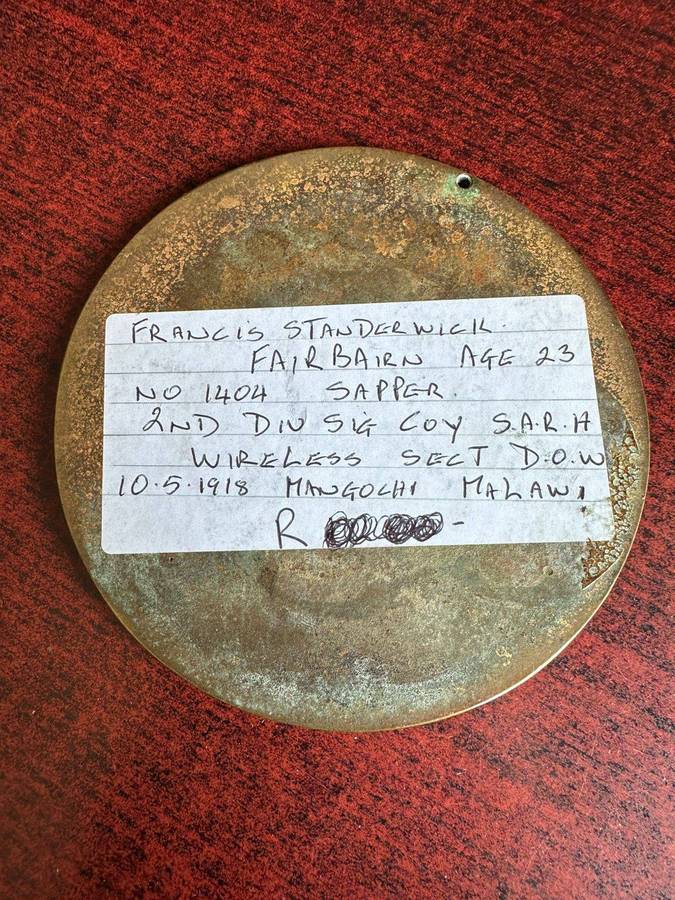 FRANCIS STANDERWICK.
FAIRBAIRN AGE 23
NO 1404 SAPPER.
2ND DIV SIG COY S.A.R.H
WIRELESS SECT D.O.W
10.5.1918 MANGOCHI MALAWI
R